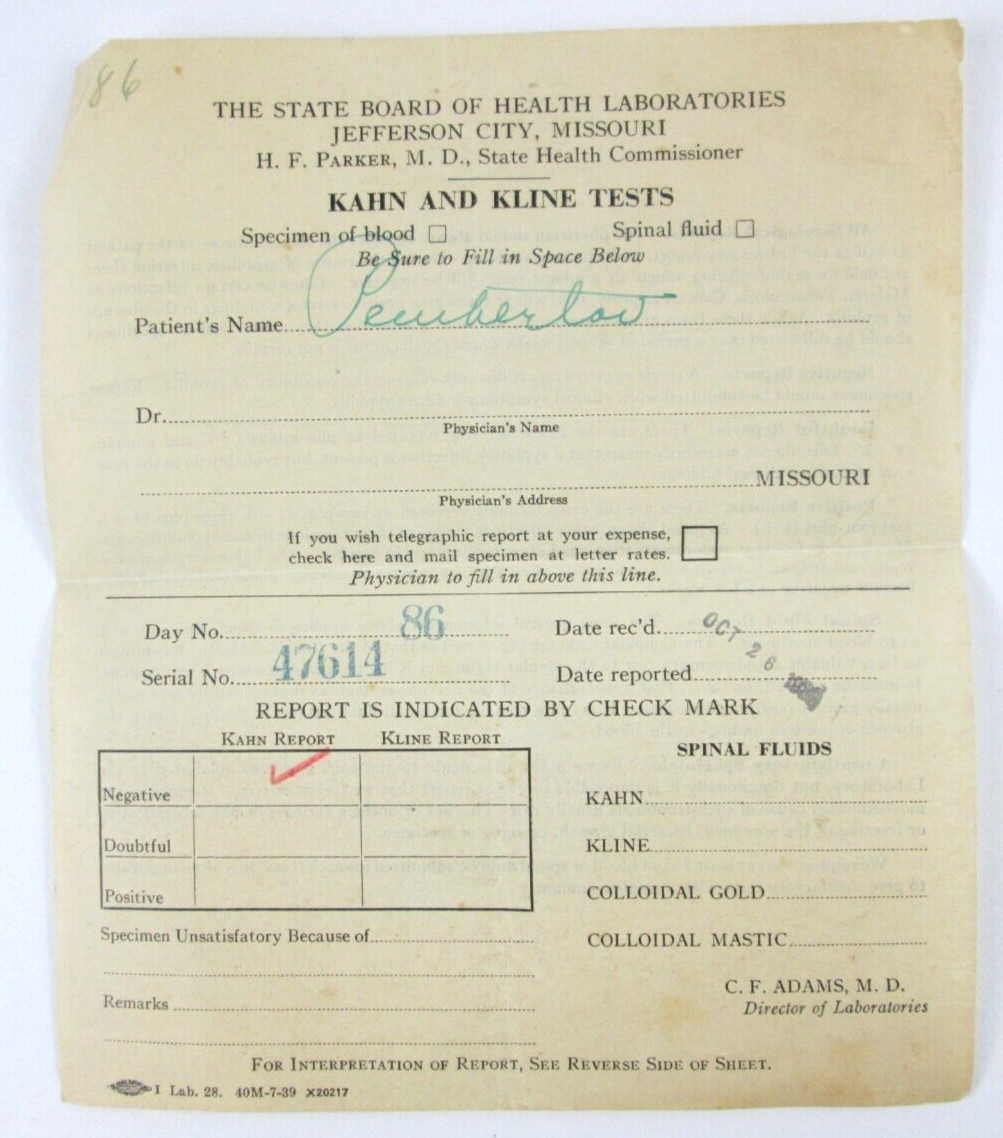 86
THE STATE BOARD OF HEALTH LABORATORIES
JEFFERSON CITY, MISSOURI
H. F. PARKER, M. D., State Health Commissioner
KAHN AND KLINE TESTS
Specimen of blood ☐ Spinal fluid ☐
Be Sure to Fill in Space Below
Patient's Name Pemberton
Dr.
Physician's Name
MISSOURI
Physician's Address
If you wish telegraphic report at your expense,
check here and mail specimen at letter rates. ☐
Physician to fill in above this line.
Day No. 86 Date rec'd. OCT 26
Serial No. 47614 Date reported
REPORT IS INDICATED BY CHECK MARK
KAHN REPORT KLINE REPORT SPINAL FLUIDS
Negative ✓ KAHN
Doubtful KLINE
Positive COLLOIDAL GOLD
Specimen Unsatisfatory Because of COLLOIDAL MASTIC
C. F. ADAMS, M. D.
Remarks Director of Laboratories
FOR INTERPRETATION OF REPORT, SEE REVERSE SIDE OF SHEET.
I Lab. 28. 40M-7-39 X20217